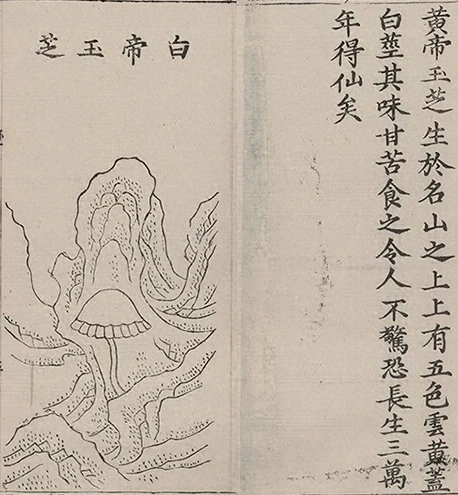 黃帝玉芝生於名山之上上有五色雲黃蓋
白莖其味甘苦食之令人不驚恐長生三萬
年得仙矣
白帝玉芝